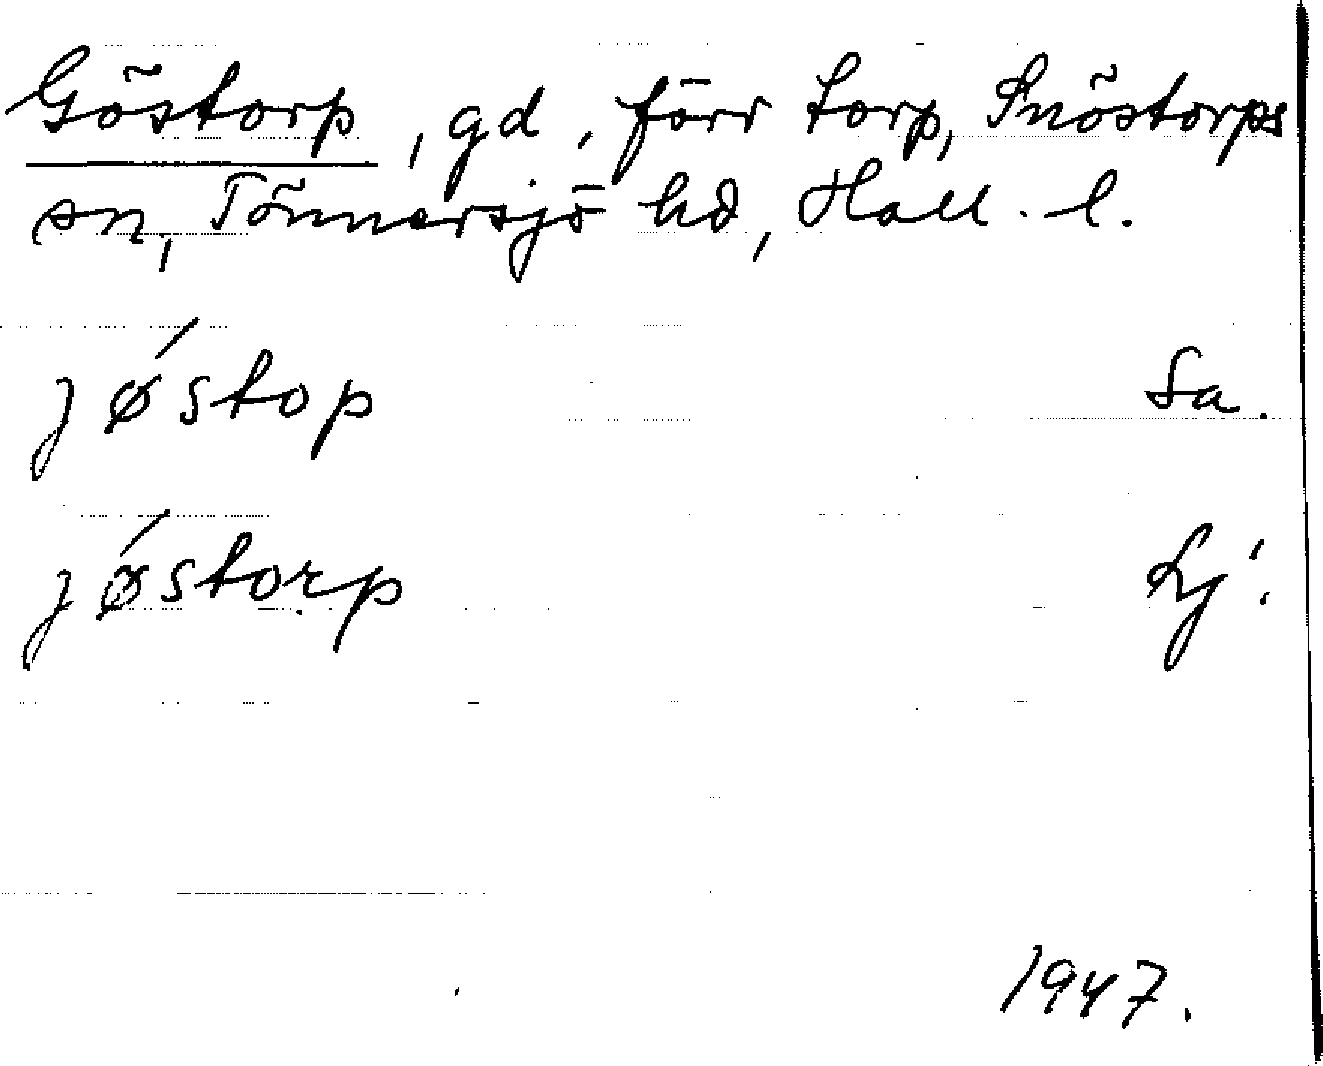 Göstorp, gd, förr torp, Snöstorps
sn, Tönnersjö hd, Hall. l.
jǿstop Sa.
jǿstorp Lj.
1947.